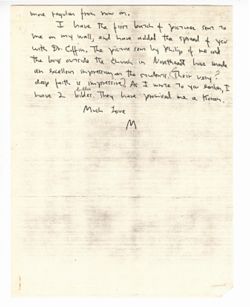 more regular from now on.
I have the first batch of pictures sent to
me on my wall, and have added the spread of you
with Dr. Coffin. The picture sent by Philip of me and
the boys outside the church in Northeast has made
an excellent impression on the students. (Their very
deep faith is impressive.) As I wrote to you earlier, I
have 2 bibles. They have promised me a Koran.
Much love
M